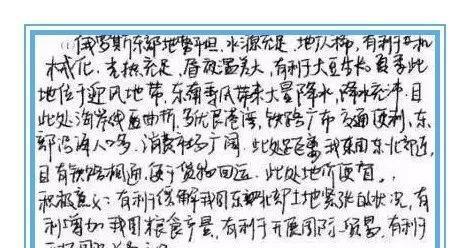 (1)俄罗斯东部地势平坦,水源充足,地广人稀,有利于机
械化。光热充足,昼夜温差大,有利于大豆生长。夏季此
地位于迎风地带,东南季风带来大量降水,降水充沛。且
此处海岸线曲折,多优良港湾,铁路广布,交通便利,东
部沿海人口多,消费市场广阔。此处距离我国东北部近,
且有铁路相通,便于货物回运。此处地价便宜。
积极意义:有利于缓解我国东北部土地紧张的状况,有
利增加我国粮食产量,有利于开展国际贸易,有利于